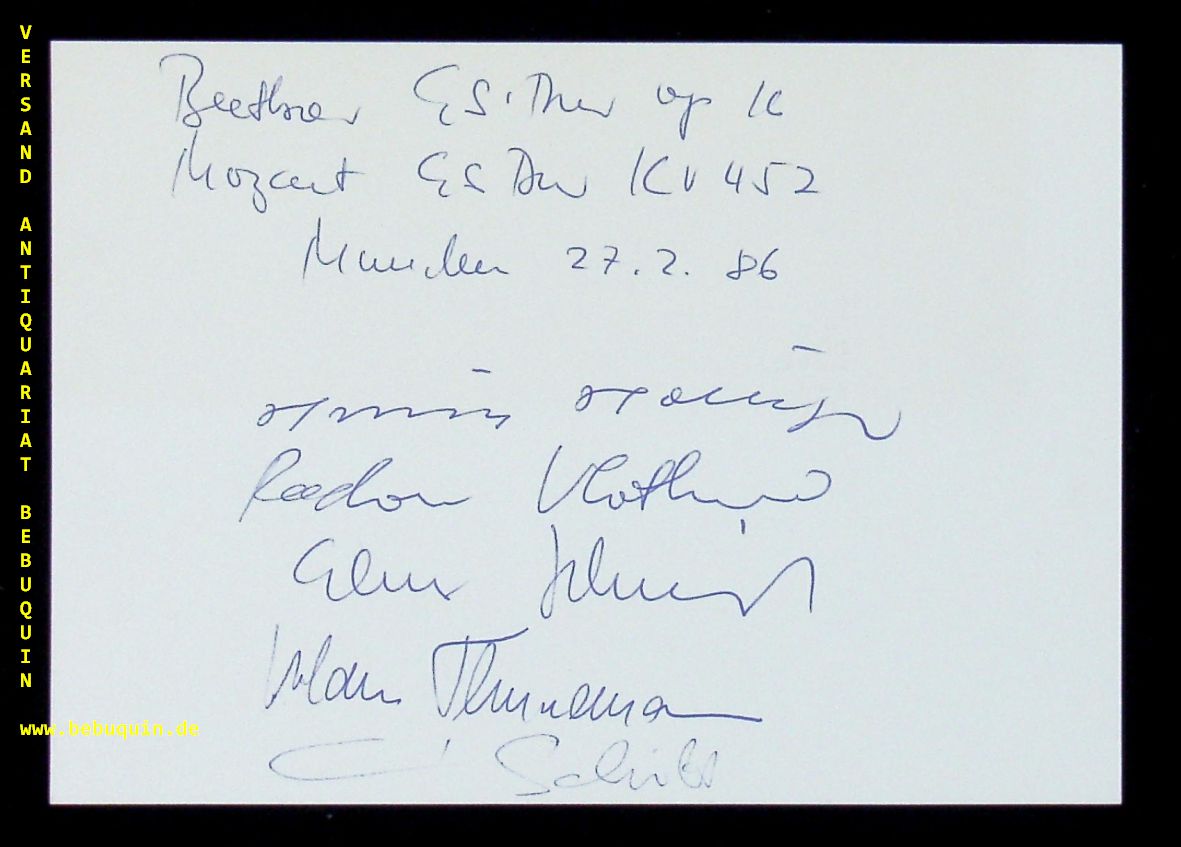 VERSAND ANTIQUARIAT BEBUQUIN
www.bebuquin.de
Beethoven Es-Dur op 16
Mozart Es Dur KV 452
München 27.2.86
Heinz Holliger
Radovan Vlatković
Elmar Schmid
Klaus Thunemann
Schiff